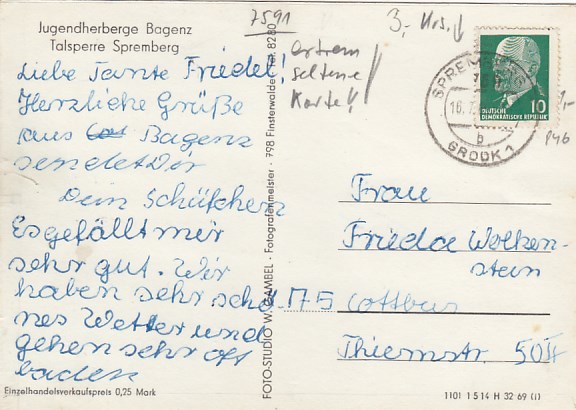 Jugendherberge Bagenz
Talsperre Spremberg
7591
3,- Mrs.
extrem
seltene
Karte!!
Liebe Tante Friedel!
Herzliche Grüße
aus Bagenz
sendet Dir
Dein Schäfchen
Es gefällt mir
sehr gut. Wir
haben sehr schö
nes Wetter und
gehen sehr oft
baden
Einzelhandelsverkaufspreis 0,25 Mark
FOTO-STUDIO W. GAMBEL · Fotografenmeister · 798 Finsterwalde · Tel. 8280
SPREMBERG
16.7.
b
GRODK 1
10
DEUTSCHE
DEMOKRATISCHE REPUBLIK
P46
Frau
Frieda Wolken-
stein
75 Cottbus
Thiemstr. 50 II
1101 1 5 14 H 32 69 (I)